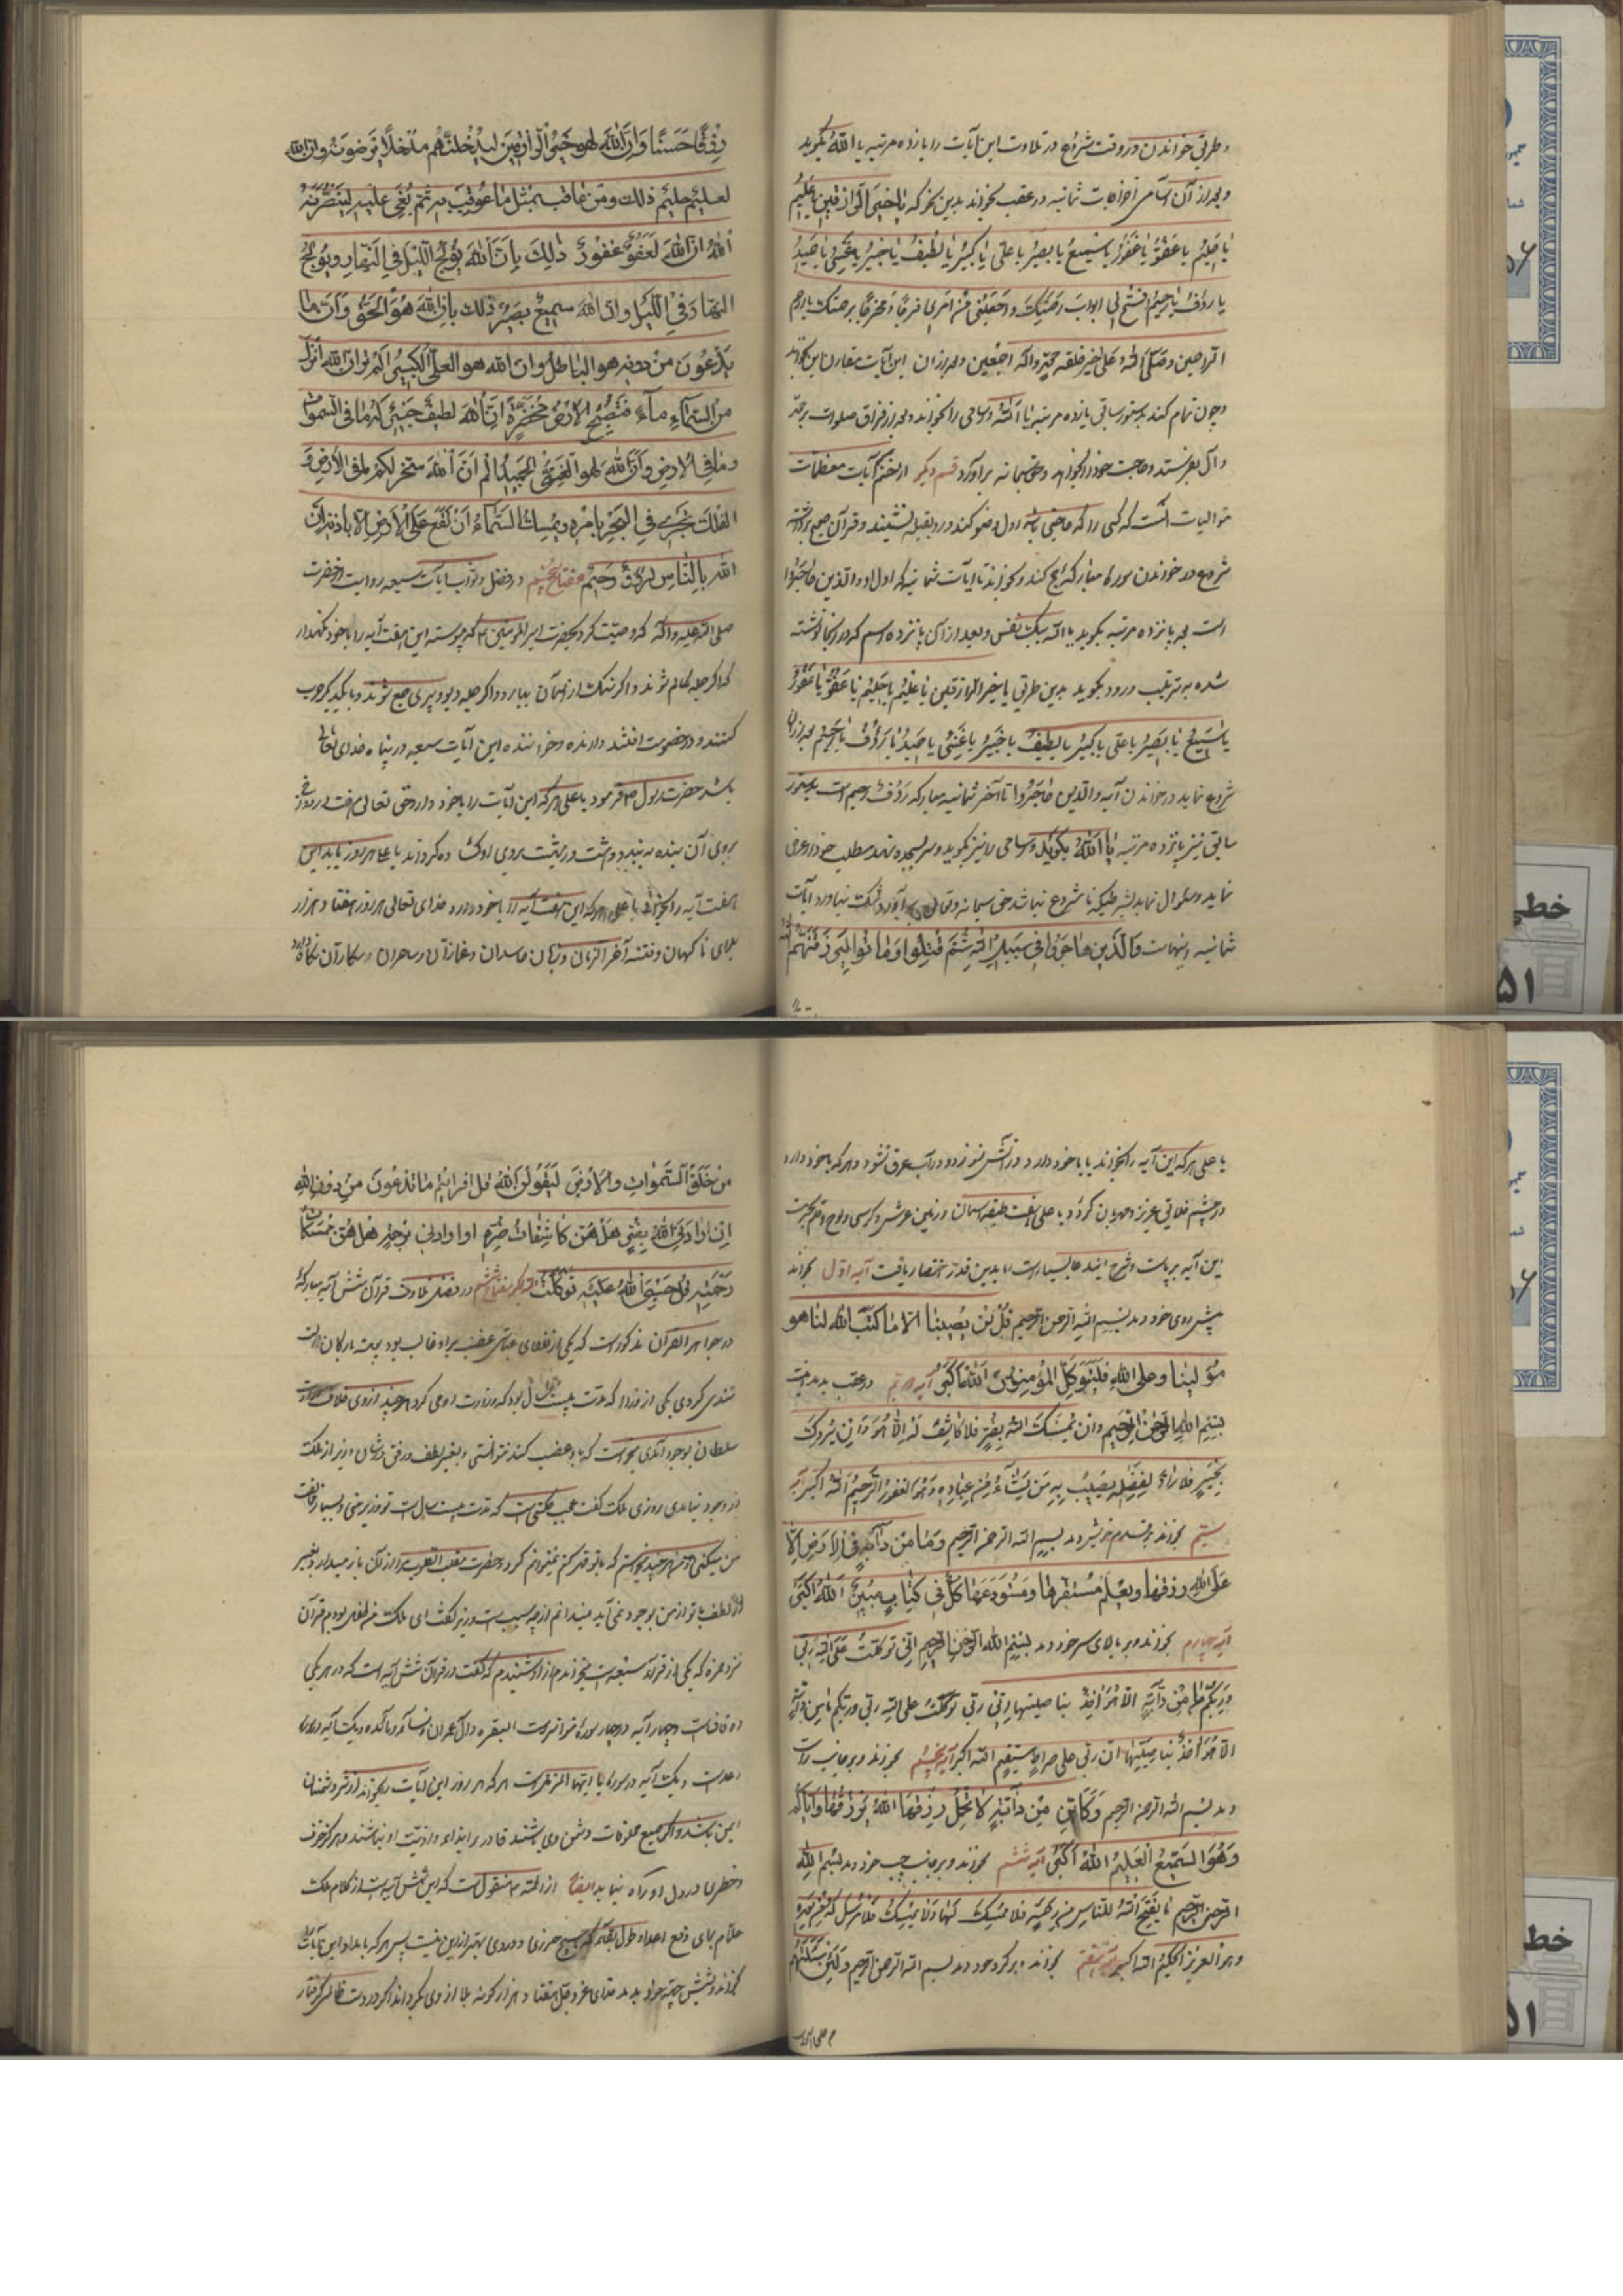 و طریق خواندن در وقت شروع در تلاوت این آیات را یازده مرتبه یا الله بگوید
و بعد از آن اسامی ثمانیه در عقب بخواند بدین نحو که یا خیر الرازقین یا علیم
یا حلیم یا عفو یا غفور یا سمیع یا بصیر یا علی یا کبیر یا لطیف یا خبیر یا غنی یا حمید
یا رؤف یا رحیم افتح لی ابواب رحمتک و اجعلنی من امری فرجا و مخرجا برحمتک یا ارحم
الراحمین و صلی الله علی خیر خلقه محمد و اله اجمعین و بعد از ان این آیات
و چون تمام کند بدستور سابق یازده مرتبه یا الله و اسامی را بخواند و بعد از فراغ صلوات بر محمد
و آل بفرستد و حاجت خود را بخواهد و حق سبحانه برآورد قسم دیگر از ختم آیات معظمات
متوالیات آنست که کسی را که حاجتی باشد اول وضو کند و رو بقبله نشیند و قرآن
شروع در خواندن سوره مبارکه حج کند و بخواند تا آیات ثمانیه که اول او و الذین هاجروا
است بعد پانزده مرتبه بگوید یا الله بیک نفس و بعد از آن پانزده اسم که در اینجا نوشته
شده به ترتیب ورود بگوید بدین طریق یا خیر الرازقین یا علیم یا حلیم یا عفو یا غفور
یا سمیع یا بصیر یا علی یا کبیر یا لطیف یا خبیر یا غنی یا حمید یا رؤف یا رحیم بعد از آن
شروع نماید در خواندن آیه و الذین هاجروا تا آخر ثمانیه مبارکه رؤف رحیم است بدستور
سابق نیز پانزده مرتبه یا الله بگوید و اسامی را نیز بگوید و سر بسجده نهد مطلب خود را عرض
نماید و سؤال نماید بشرطیکه نامشروع نباشد حق سبحانه و تعالی برآورد و شک نیاورد و آیات
ثمانیه اینهاست و الذین هاجروا فی سبیل الله ثم قتلوا او ماتوا لیرزقنهم الله
رزقا حسنا و ان الله لهو خیر الرازقین لیدخلنهم مدخلا یرضونه و ان الله
لعلیم حلیم ذلک و من عاقب بمثل ما عوقب به ثم بغی علیه لینصرنه
الله ان الله لعفو غفور ذلک بان الله یولج اللیل فی النهار و یولج
النهار فی اللیل و ان الله سمیع بصیر ذلک بان الله هو الحق و ان ما
یدعون من دونه هو الباطل و ان الله هو العلی الکبیر الم تر ان الله انزل
من السماء ماء فتصبح الارض مخضرة ان الله لطیف خبیر له ما فی السموات
و ما فی الارض و ان الله لهو الغنی الحمید الم تر ان الله سخر لکم ما فی الارض و
الفلک تجری فی البحر بامره و یمسک السماء ان تقع علی الارض الا باذنه ان
الله بالناس لرؤف رحیم مفتاح پنجم در فضل و ثواب آیات سبعه روایت از حضرت
صلی الله علیه و آله که وصیت کرد بحضرت امیر المومنین که پیوسته این هفت آیه را با خود نگهدار
که اگر جمله عالم شوند و اگر سنگ از آسمان ببارد و اگر جمله دیو و پری جمع شوند و با یکدیگر حرب
کنند و در خصومت افتند دارنده و خواننده این آیات سبعه در پناه خدای تعالی
باشد حضرت رسول فرمود یا علی هر که این آیات را با خود دارد حق تعالی
بروی آن بنده نه بندد و هشت در بهشت بروی او گشاده گرداند یا علی هر روز باید این
هفت آیه را بخوانی یا علی هر که این هفت آیه را با خود دارد خدای تعالی هر روز هفتاد هزار
بلای ناگهان و فتنه آخر الزمان و زبان حاسدان و غمازان و ساحران و مکاران نگاه دارد
یا علی هر که این آیه را بخواند یا با خود دارد در آتش نسوزد و در آب غرق نشود و هر که با خود دارد
در چشم خلایق عزیز و مهربان گردد یا علی هفت طبقه آسمان و زمین عرش و کرسی و لوح و قلم
این آیه برپاست و شرح اینها بسیار است اما بدین قدر اختصار یافت آیه اول بخواند
پیش روی خود دمد بسم الله الرحمن الرحیم قل لن یصیبنا الا ما کتب الله لنا هو
مولینا و علی الله فلیتوکل المؤمنون الله اکبر آیه دویم در عقب بدمد
بسم الله الرحمن الرحیم و ان یمسسک الله بضر فلا کاشف له الا هو و ان یردک
بخیر فلا راد لفضله یصیب به من یشاء من عباده و هو الغفور الرحیم الله اکبر آیه
سیم بخواند بر قدم خویش دمد بسم الله الرحمن الرحیم و ما من دابة فی الارض الا
علی الله رزقها و یعلم مستقرها و مستودعها کل فی کتاب مبین الله اکبر
آیه چهارم بخواند و بر بالای سر خود دمد بسم الله الرحمن الرحیم انی توکلت علی الله ربی
و ربکم ما من دابة الا هو اخذ بناصیتها ان ربی توکلت علی الله ربی و ربکم ما من دابة
الا هو اخذ بناصیتها ان ربی علی صراط مستقیم الله اکبر آیه پنجم بخواند و بر جانب راست
دمد بسم الله الرحمن الرحیم و کاین من دابة لا تحمل رزقها الله یرزقها و ایاکم
و هو السمیع العلیم الله اکبر آیه ششم بخواند و بر جانب چپ خود دمد بسم الله
الرحمن الرحیم ما یفتح الله للناس من رحمة فلا ممسک لها و ما یمسک فلا مرسل له من بعده
و هو العزیز الحکیم الله اکبر آیه هفتم بخواند بر گرد خود دمد بسم الله الرحمن الرحیم و لئن سئلتهم
من خلق السموات و الارض لیقولن الله قل افرایتم ما تدعون من دون الله
ان ارادنی الله بضر هل هن کاشفات ضره او ارادنی برحمة هل هن ممسکات
رحمته قل حسبی الله علیه توکلت مفتاح ششم در فضل تلاوت قرآن شش آیه مبارکه
در جواهر القرآن مذکور است که یکی از خلفای عباسی غضب بر او غالب بود پیوسته با ارکان دولت
تندی کردی یکی از وزرا که مدت بیست سال بود که وزارت او می کرد هر چند از وی خلاف
سلطان بوجود آمدی میخواست که با او غضب کند نتوانستی و بغیر لطف و رفق در شان وزیر از ملک
در وجود نیامدی روزی ملک گفت عجب حکمتی است که مدت بیست سال است تو وزیر منی و بسیار مخالفت
من میکنی و من هر چند میخواستم که با تو قهر کنم نمیتوانم کرد و حضرت مقلب القلوب مرا از آن باز میدارد و بغیر
از لطف با تو از من بوجود نمی آید نمیدانم از چه سبب است وزیر گفت ای ملک من طفل بودم قرآن
نزد حمزه که یکی از قراء سبعه است میخواندم از او شنیدم که گفت در قرآن شش آیه است که در هر یکی
ده قاف است و چهار آیه در چهار سوره متواتر است البقره و آل عمران و نساء و مائده و یک آیه در سوره
رعد است و یک آیه در سوره یا ایها المزمل است هر که هر روز این آیات را بخواند از شر دشمنان
ایمن باشد و اگر جمیع مخلوقات دشمن وی باشند قادر بر ایذاء و اذیت او نباشند و هرگز خوف
و خطری در دل او راه نیابد ایضا از ائمه منقول است که این شش آیه است از کلام ملک
علام برای دفع اعداء و طول بقا که هیچ حرزی و وردی بهتر از این نیست پس هر که بامداد این آیات را
بخواند و بشش جهت خود بدمد خدای عز و جل هفتاد هزار گونه بلا از وی بگرداند و اگر در دست ظالمی گرفتار
خطی
۵۱
خطی
۵۱